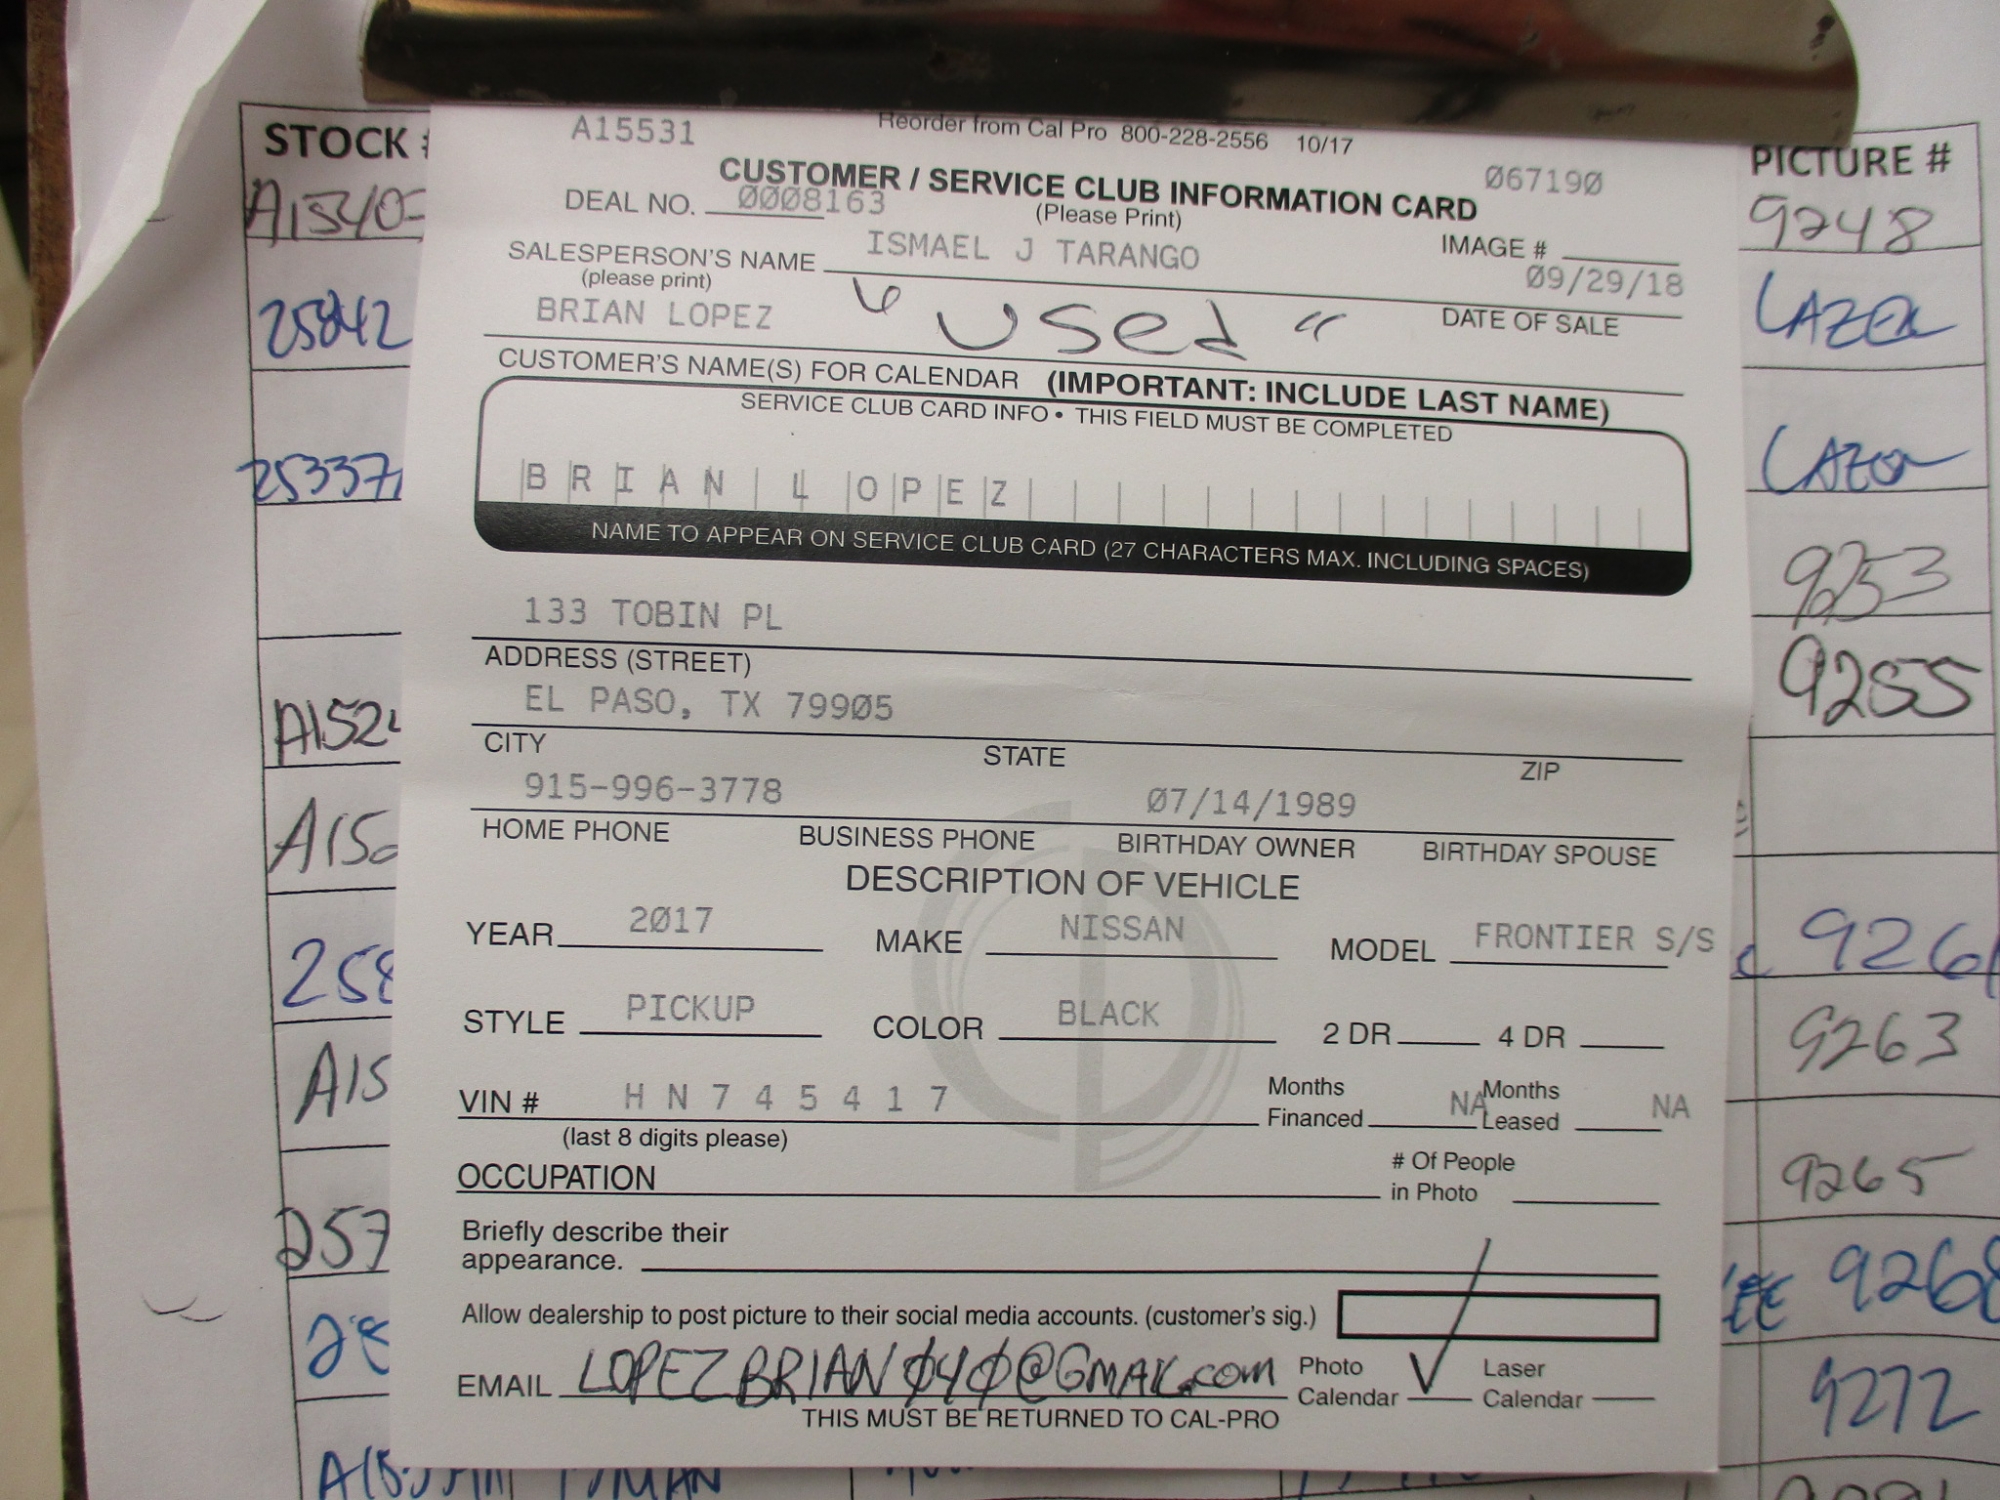 A15531 Reorder from Cal Pro 800-228-2556 10/17
CUSTOMER / SERVICE CLUB INFORMATION CARD Ø6719Ø
DEAL NO. ØØØ8163 (Please Print)
SALESPERSON'S NAME ISMAEL J TARANGO IMAGE #
(please print) Ø9/29/18
BRIAN LOPEZ "Used" DATE OF SALE
CUSTOMER'S NAME(S) FOR CALENDAR (IMPORTANT: INCLUDE LAST NAME)
SERVICE CLUB CARD INFO • THIS FIELD MUST BE COMPLETED
BRIAN LOPEZ
NAME TO APPEAR ON SERVICE CLUB CARD (27 CHARACTERS MAX. INCLUDING SPACES)
133 TOBIN PL
ADDRESS (STREET)
EL PASO, TX 799Ø5
CITY STATE ZIP
915-996-3778 Ø7/14/1989
HOME PHONE BUSINESS PHONE BIRTHDAY OWNER BIRTHDAY SPOUSE
DESCRIPTION OF VEHICLE
YEAR 2Ø17 MAKE NISSAN MODEL FRONTIER S/S
STYLE PICKUP COLOR BLACK 2 DR 4 DR
VIN # H N 7 4 5 4 1 7 Months Financed NA Months Leased NA
(last 8 digits please)
OCCUPATION # Of People in Photo
Briefly describe their
appearance.
Allow dealership to post picture to their social media accounts. (customer's sig.)
EMAIL LOPEZBRIANØ4Ø@GMAIL.com Photo Calendar ✓ Laser Calendar
THIS MUST BE RETURNED TO CAL-PRO
STOCK #
25842
PICTURE #
9248
LAZER
LAZER
9253
9255
9261
9263
9265
9268
9272